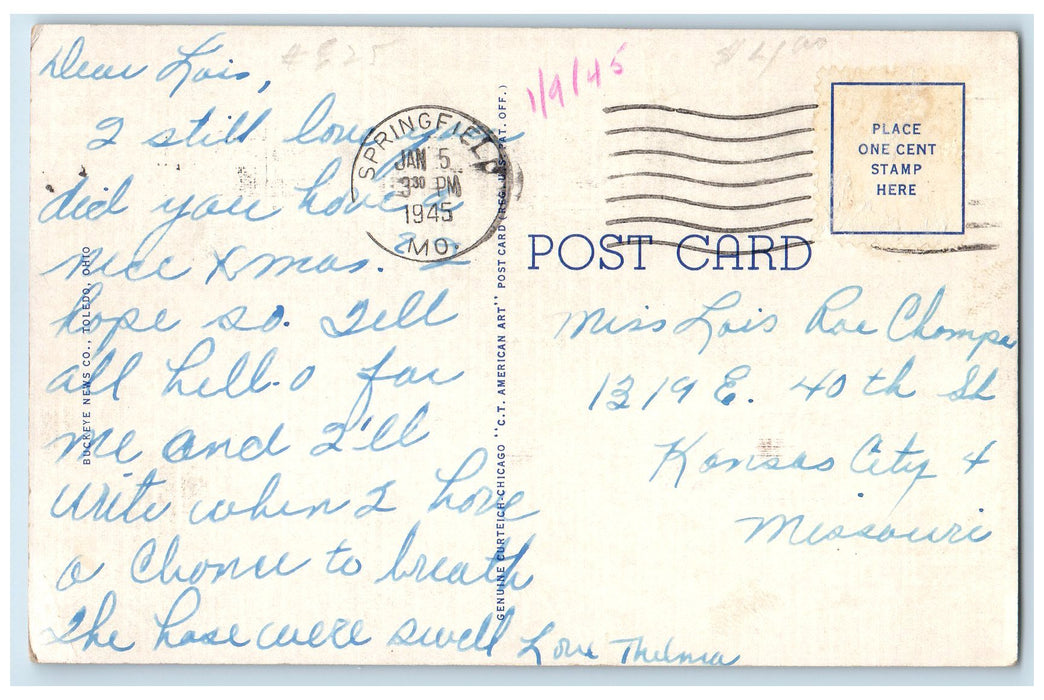 Dear Lois,
I still love you
did you have a
nice Xmas. I
hope so. Tell
all hell-o for
me and I'll
write when I have
a chance to breath
The hose were swell Love Thelma
1/9/45
SPRINGFIELD
JAN 5
3 30 PM
1945
MO.
PLACE
ONE CENT
STAMP
HERE
POST CARD
Miss Lois Rae
1319 E. 40th St
Kansas City 4
Missouri
BUCKEYE NEWS CO., TOLEDO, OHIO
GENUINE CURTEICH-CHICAGO "C.T. AMERICAN ART" POST CARD (REG. U.S. PAT. OFF.)